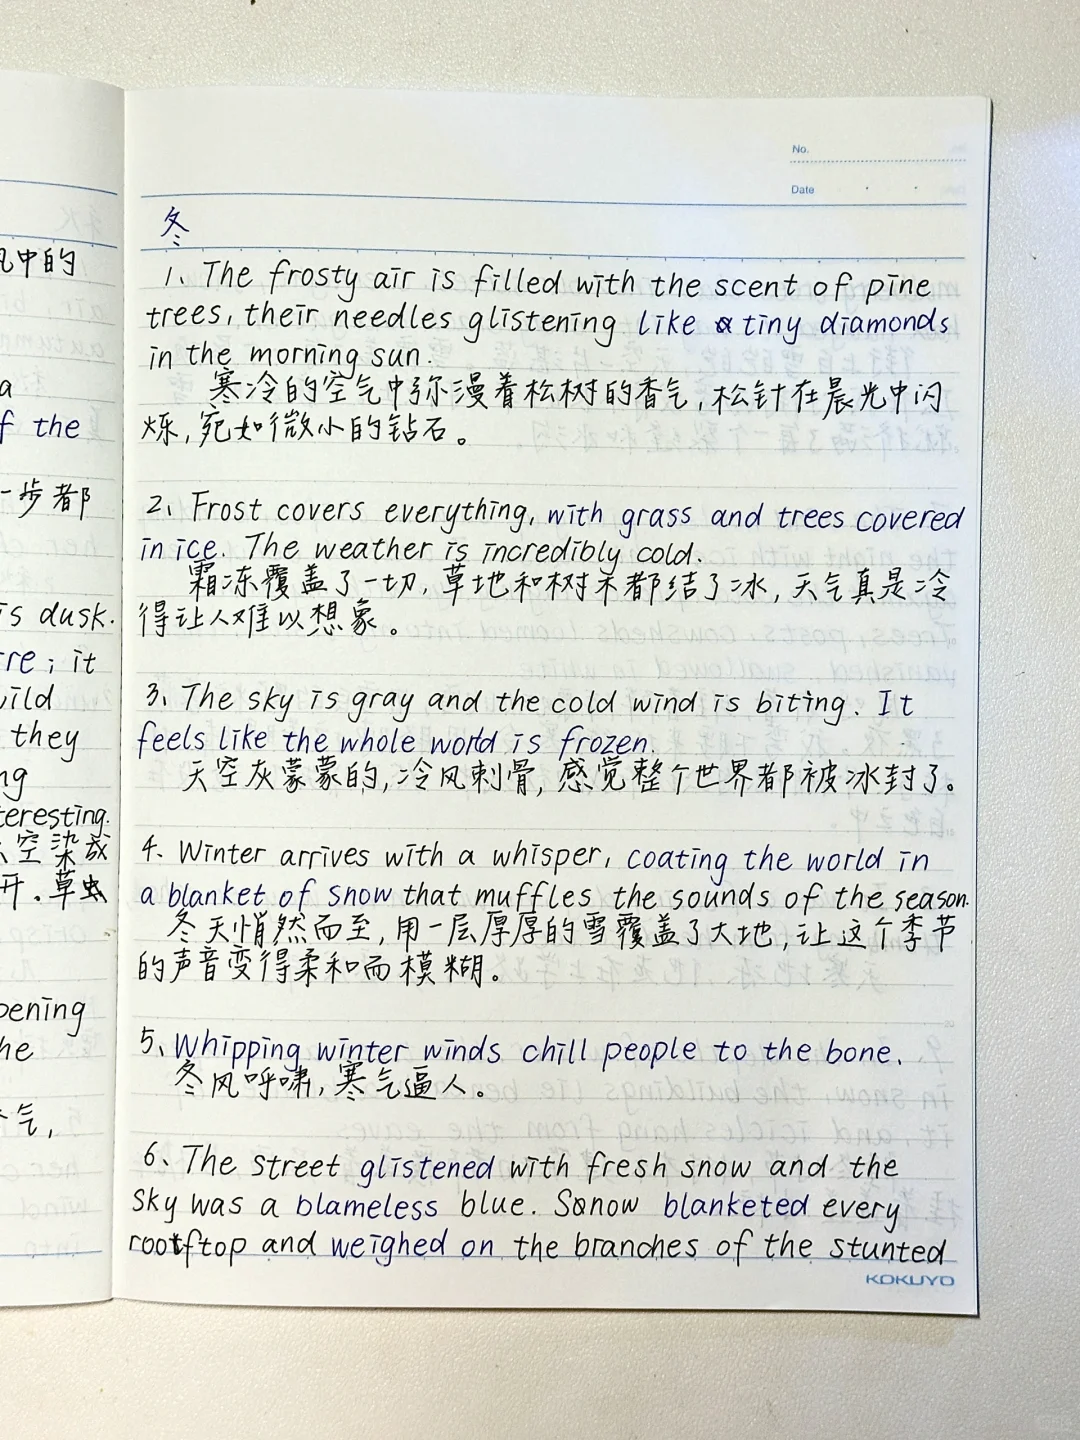 No.
Date
冬
1. The frosty air is filled with the scent of pine
trees, their needles glistening like tiny diamonds
in the morning sun.
寒冷的空气中弥漫着松树的香气,松针在晨光中闪
烁,宛如微小的钻石。
2. Frost covers everything, with grass and trees covered
in ice. The weather is incredibly cold.
霜冻覆盖了一切,草地和树木都结了冰,天气真是冷
得让人难以想象。
3. The sky is gray and the cold wind is biting. It
feels like the whole world is frozen.
天空灰蒙蒙的,冷风刺骨,感觉整个世界都被冰封了。
4. Winter arrives with a whisper, coating the world in
a blanket of snow that muffles the sounds of the season.
冬天悄然而至,用一层厚厚的雪覆盖了大地,让这个季节
的声音变得柔和而模糊。
5、Whipping winter winds chill people to the bone.
冬风呼啸,寒气逼人。
6、The street glistened with fresh snow and the
sky was a blameless blue. Snow blanketed every
rooftop and weighed on the branches of the stunted
KOKUYO
中的
a
f the
一步都
is dusk.
rre; it
they
ng
teresting.
空染成
开.草虫
pening
he
气,